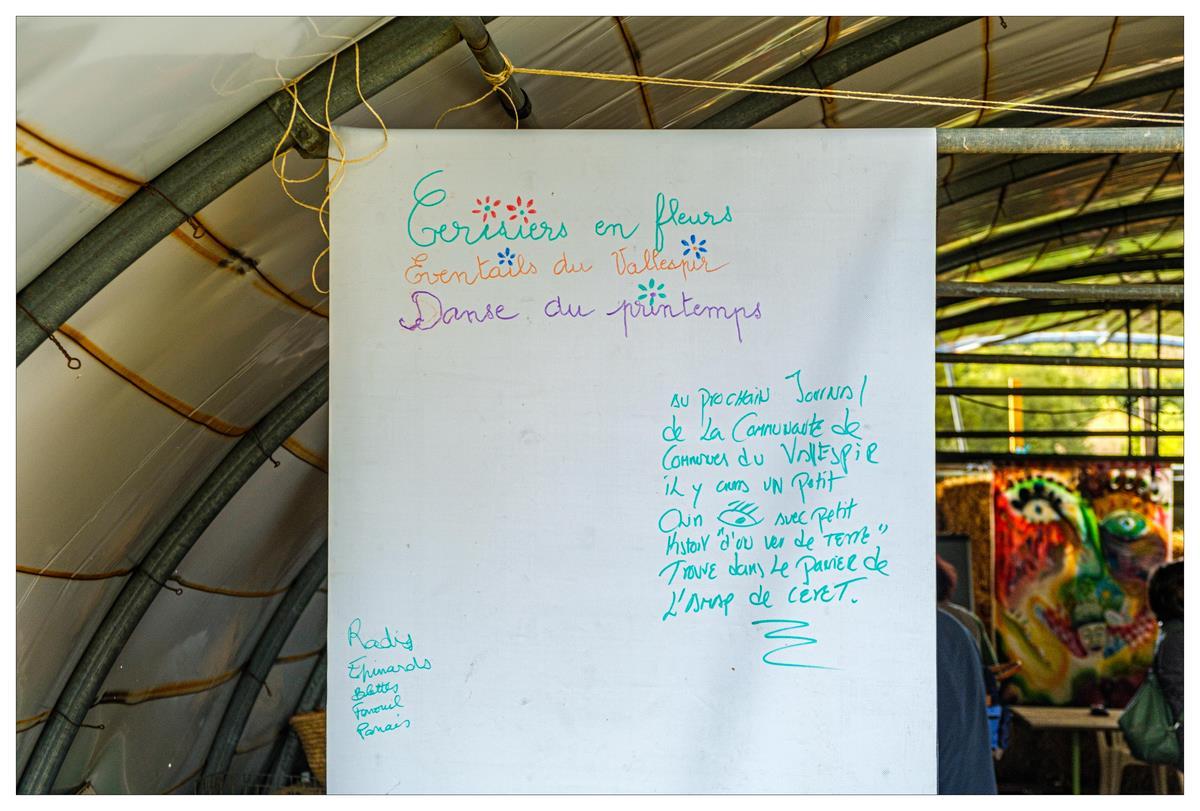 Cerisiers en fleurs
Eventails du Vallespir
Danse du printemps
au prochain Journal
de La Communauté de
Communes du Vallespir
il y aura un petit
avec petit
histoir "d'un ver de Terre"
Trouve dans Le panier de
L'AMAP de CERET.
Radis
Epinards
Blettes
Fenouil
Panais